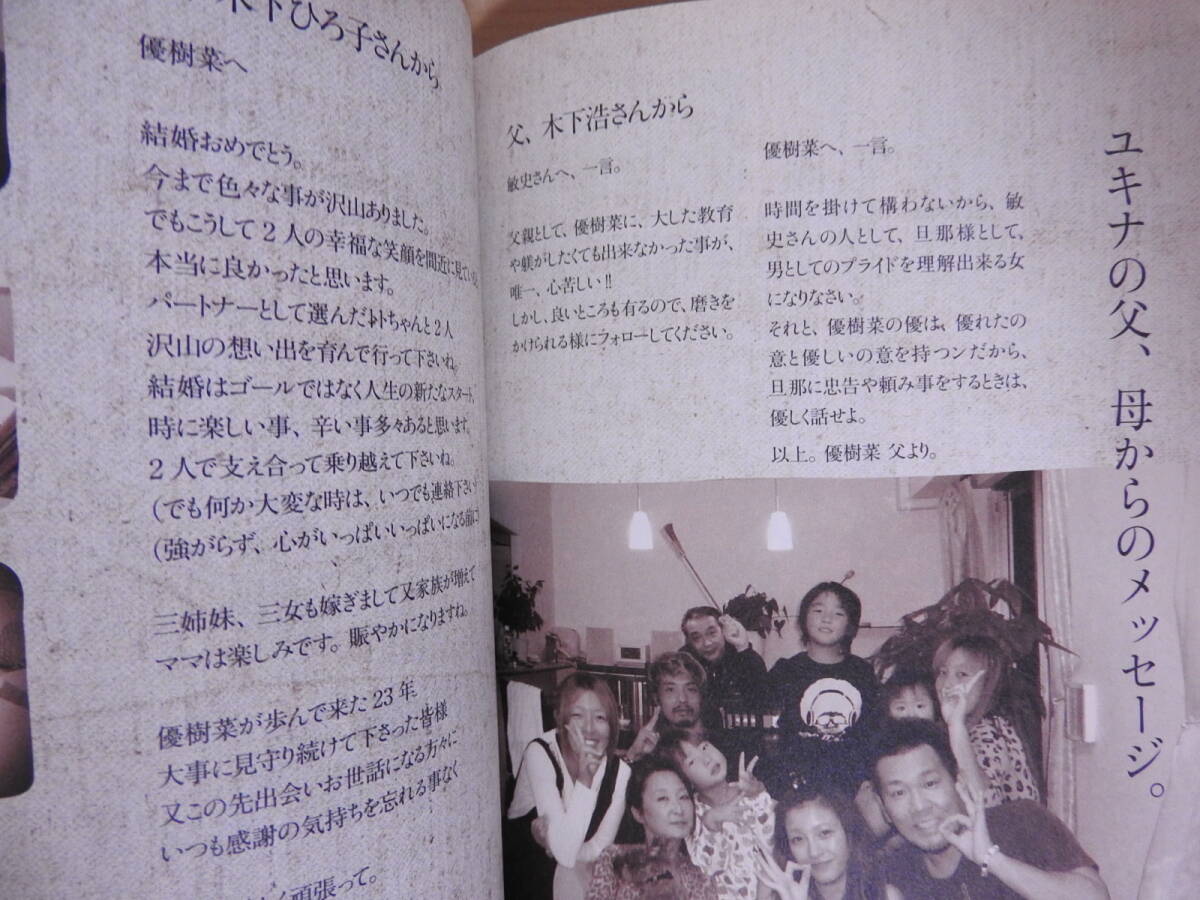 木下ひろ子さんから
優樹菜へ
結婚おめでとう。
今まで色々な事が沢山ありました。
でもこうして2人の幸福な笑顔を間近に見ていると
本当に良かったと思います。
パートナーとして選んだトトちゃんと2人
沢山の想い出を育んで行って下さいね。
結婚はゴールではなく人生の新たなスタート、
時に楽しい事、辛い事多々あると思います。
2人で支え合って乗り越えて下さいね。
(でも何か大変な時は、いつでも連絡下さい
(強がらず、心がいっぱいいっぱいになる前に
三姉妹、三女も嫁ぎまして又家族が増えて
ママは楽しみです。賑やかになりますね。
優樹菜が歩んで来た23年
大事に見守り続けて下さった皆様
又この先出会いお世話になる方々に
いつも感謝の気持ちを忘れる事なく
頑張って。
ユキナの父、母からのメッセージ。
父、木下浩さんから
敏史さんへ、一言。
父親として、優樹菜に、大した教育
や躾がしたくても出来なかった事が、
唯一、心苦しい!!
しかし、良いところも有るので、磨きを
かけられる様にフォローしてください。
優樹菜へ、一言。
時間を掛けて構わないから、敏
史さんの人として、旦那様として、
男としてのプライドを理解出来る女
になりなさい。
それと、優樹菜の優は、優れたの
意と優しいの意を持つンだから、
旦那に忠告や頼み事をするときは、
優しく話せよ。
以上。優樹菜 父より。